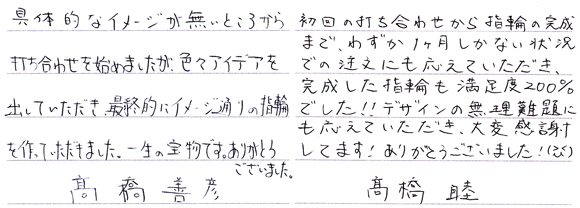 具体的なイメージが無いところから
打ち合わせを始めましたが、色々アイデアを
出していただき、最終的にイメージ通りの指輪
を作っていただきました。一生の宝物です。ありがとう
ございました。
髙橋善彦
初回の打ち合わせから指輪の完成
まで、わずか1ヶ月しかない状況
での注文にも応えていただき、
完成した指輪も満足度200%
でした!!デザインの無理難題に
も応えていただき、大変感謝
してます!ありがとうございました!(^^)
髙橋睦